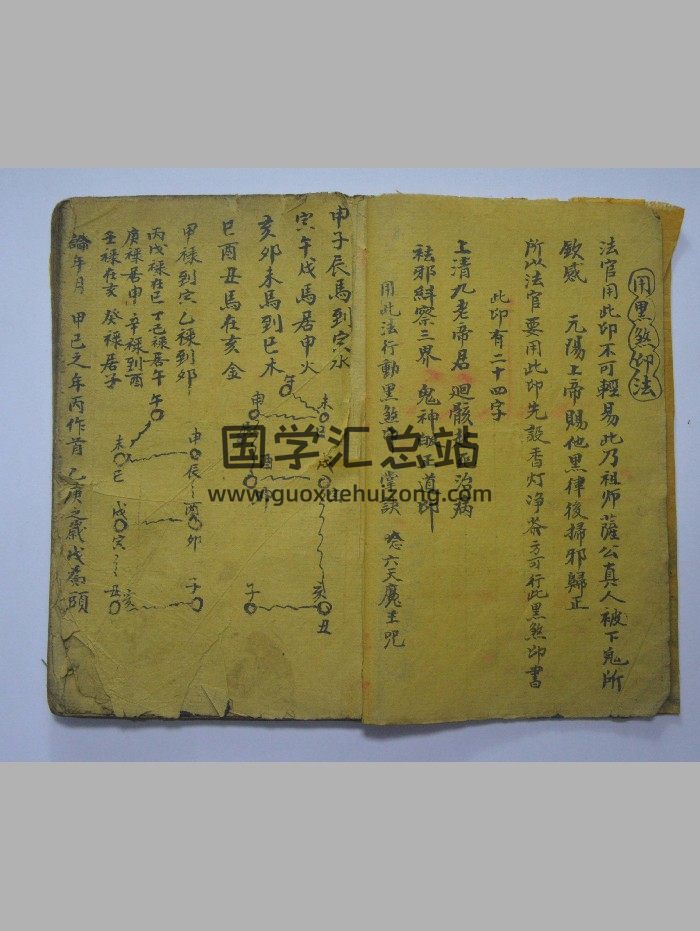 用黑煞印法
法官用此印不可輕易此乃祖师薩公真人被下鬼所
欽感 元陽上帝賜他黑律後掃邪歸正
所以法官要用此印先設香灯净茶方可行此黑煞印書
此印有二十四字
上清九老帝君 迴骸起死治病
祛邪糾察三界 鬼神 正道印
用此法行動黑煞 掌訣 唸六天魔王咒
申子辰馬到寅水
寅午戌馬居申火
亥卯未馬到巳木
巳酉丑馬在亥金
甲禄到寅乙禄到卯
丙戊禄在巳丁己禄居午
庚禄居申辛禄到酉
壬禄在亥癸禄居子
論年月 甲己之年丙作首 乙庚之歲戊為頭
午
未
申
酉
卯
子
亥
丑
午
未
巳
申
辰
戌
寅
酉
卯
丑
亥
子
国学汇总站
www.guoxuehuizong.com